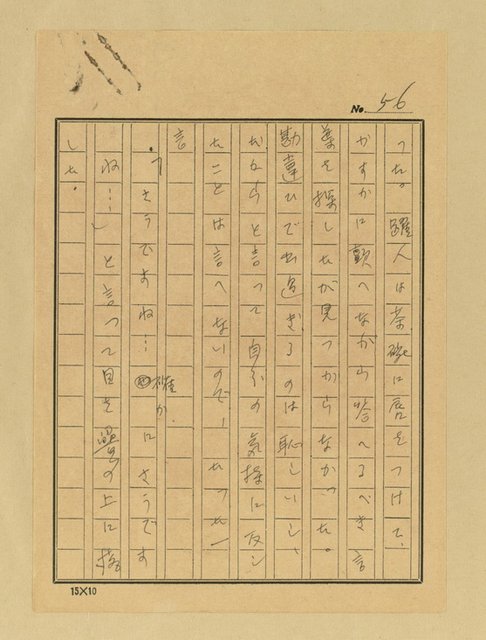 No. 56
つた。躍人は茶碗に唇をつけて、
かすかに顫へながら答へるべき言
葉を探したが見つからなかつた。
勘違ひで出過ぎるのは恥しいし、
だからと言つて自分の気持に反し
たことは言へないので、たつた一
言
「さうですね…確かにさうです
ね…」と言つて目を畳の上に落
した。
15×10